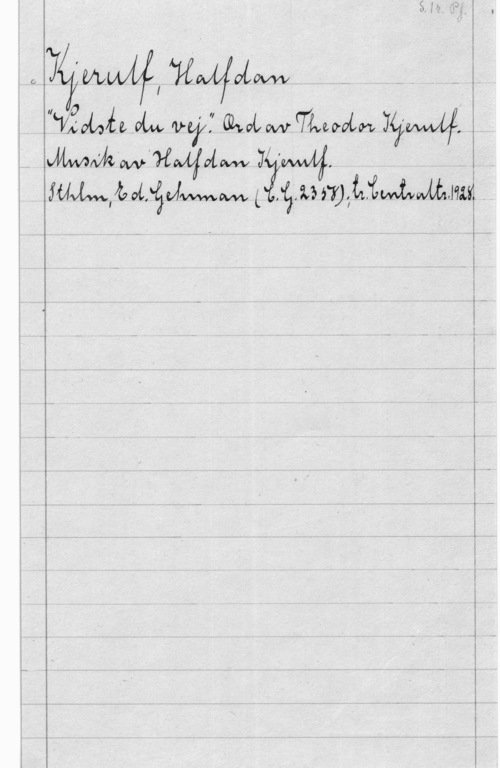 S. 1 r. Pf.
Kjerulf, Halfdan
"Vidste du vej." Ord av Theodor Kjerulf.
Musik av Halfdan Kjerulf.
Sthlm, Ed. Gehrman (C.G. 2358); tr. Centraltr. 1928.